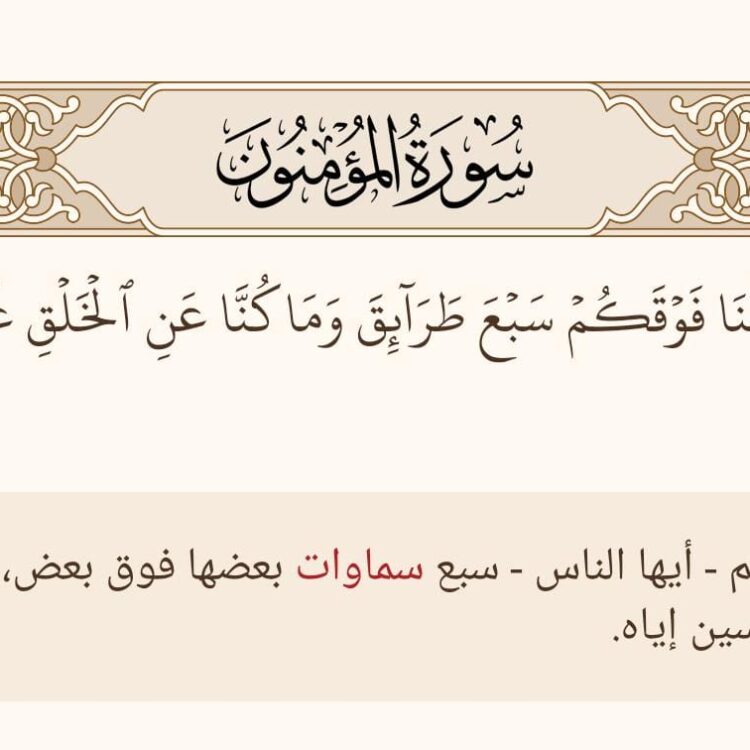 سُورَةُ المُؤْمِنُونَ
فَوْقَكُمْ سَبْعَ طَرَآئِقَ وَمَا كُنَّا عَنِ ٱلْخَلْقِ
- أيها الناس - سبع سماوات بعضها فوق بعض،
إياه.